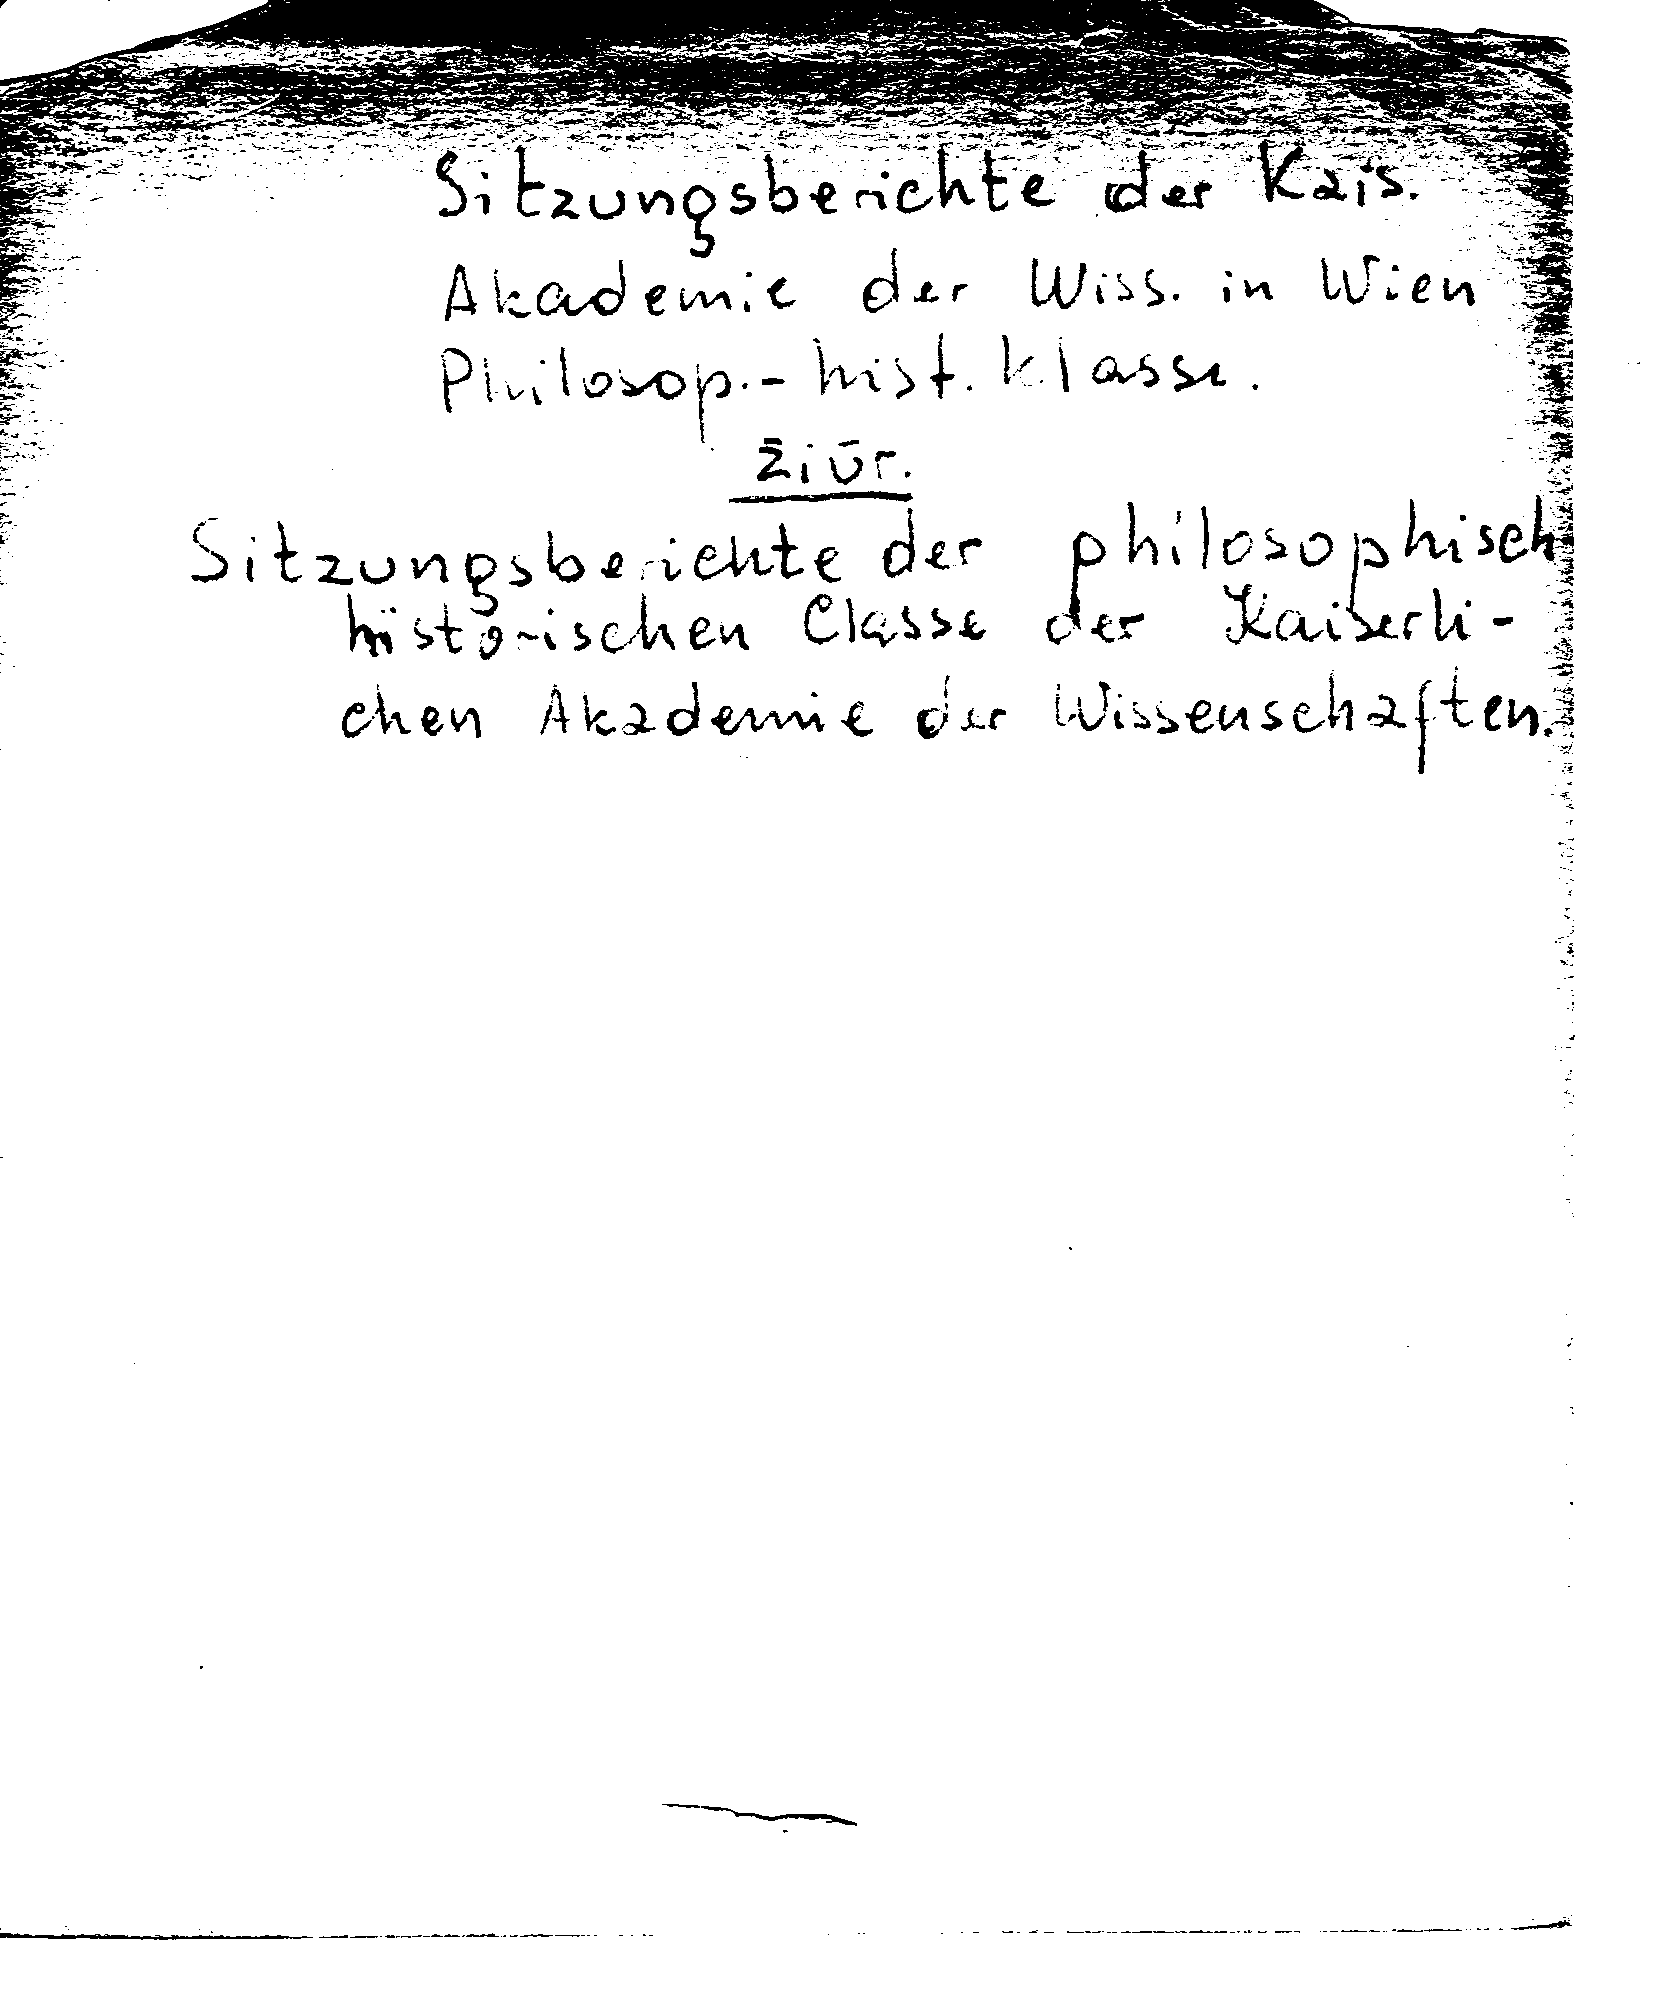 Sitzungsberichte der Kais.
Akademie der Wiss. in Wien
Philosop.- hist. Klasse.
žiūr.
Sitzungsberichte der philosophisch
historischen Classe der Kaiserli-
chen Akademie der Wissenschaften.